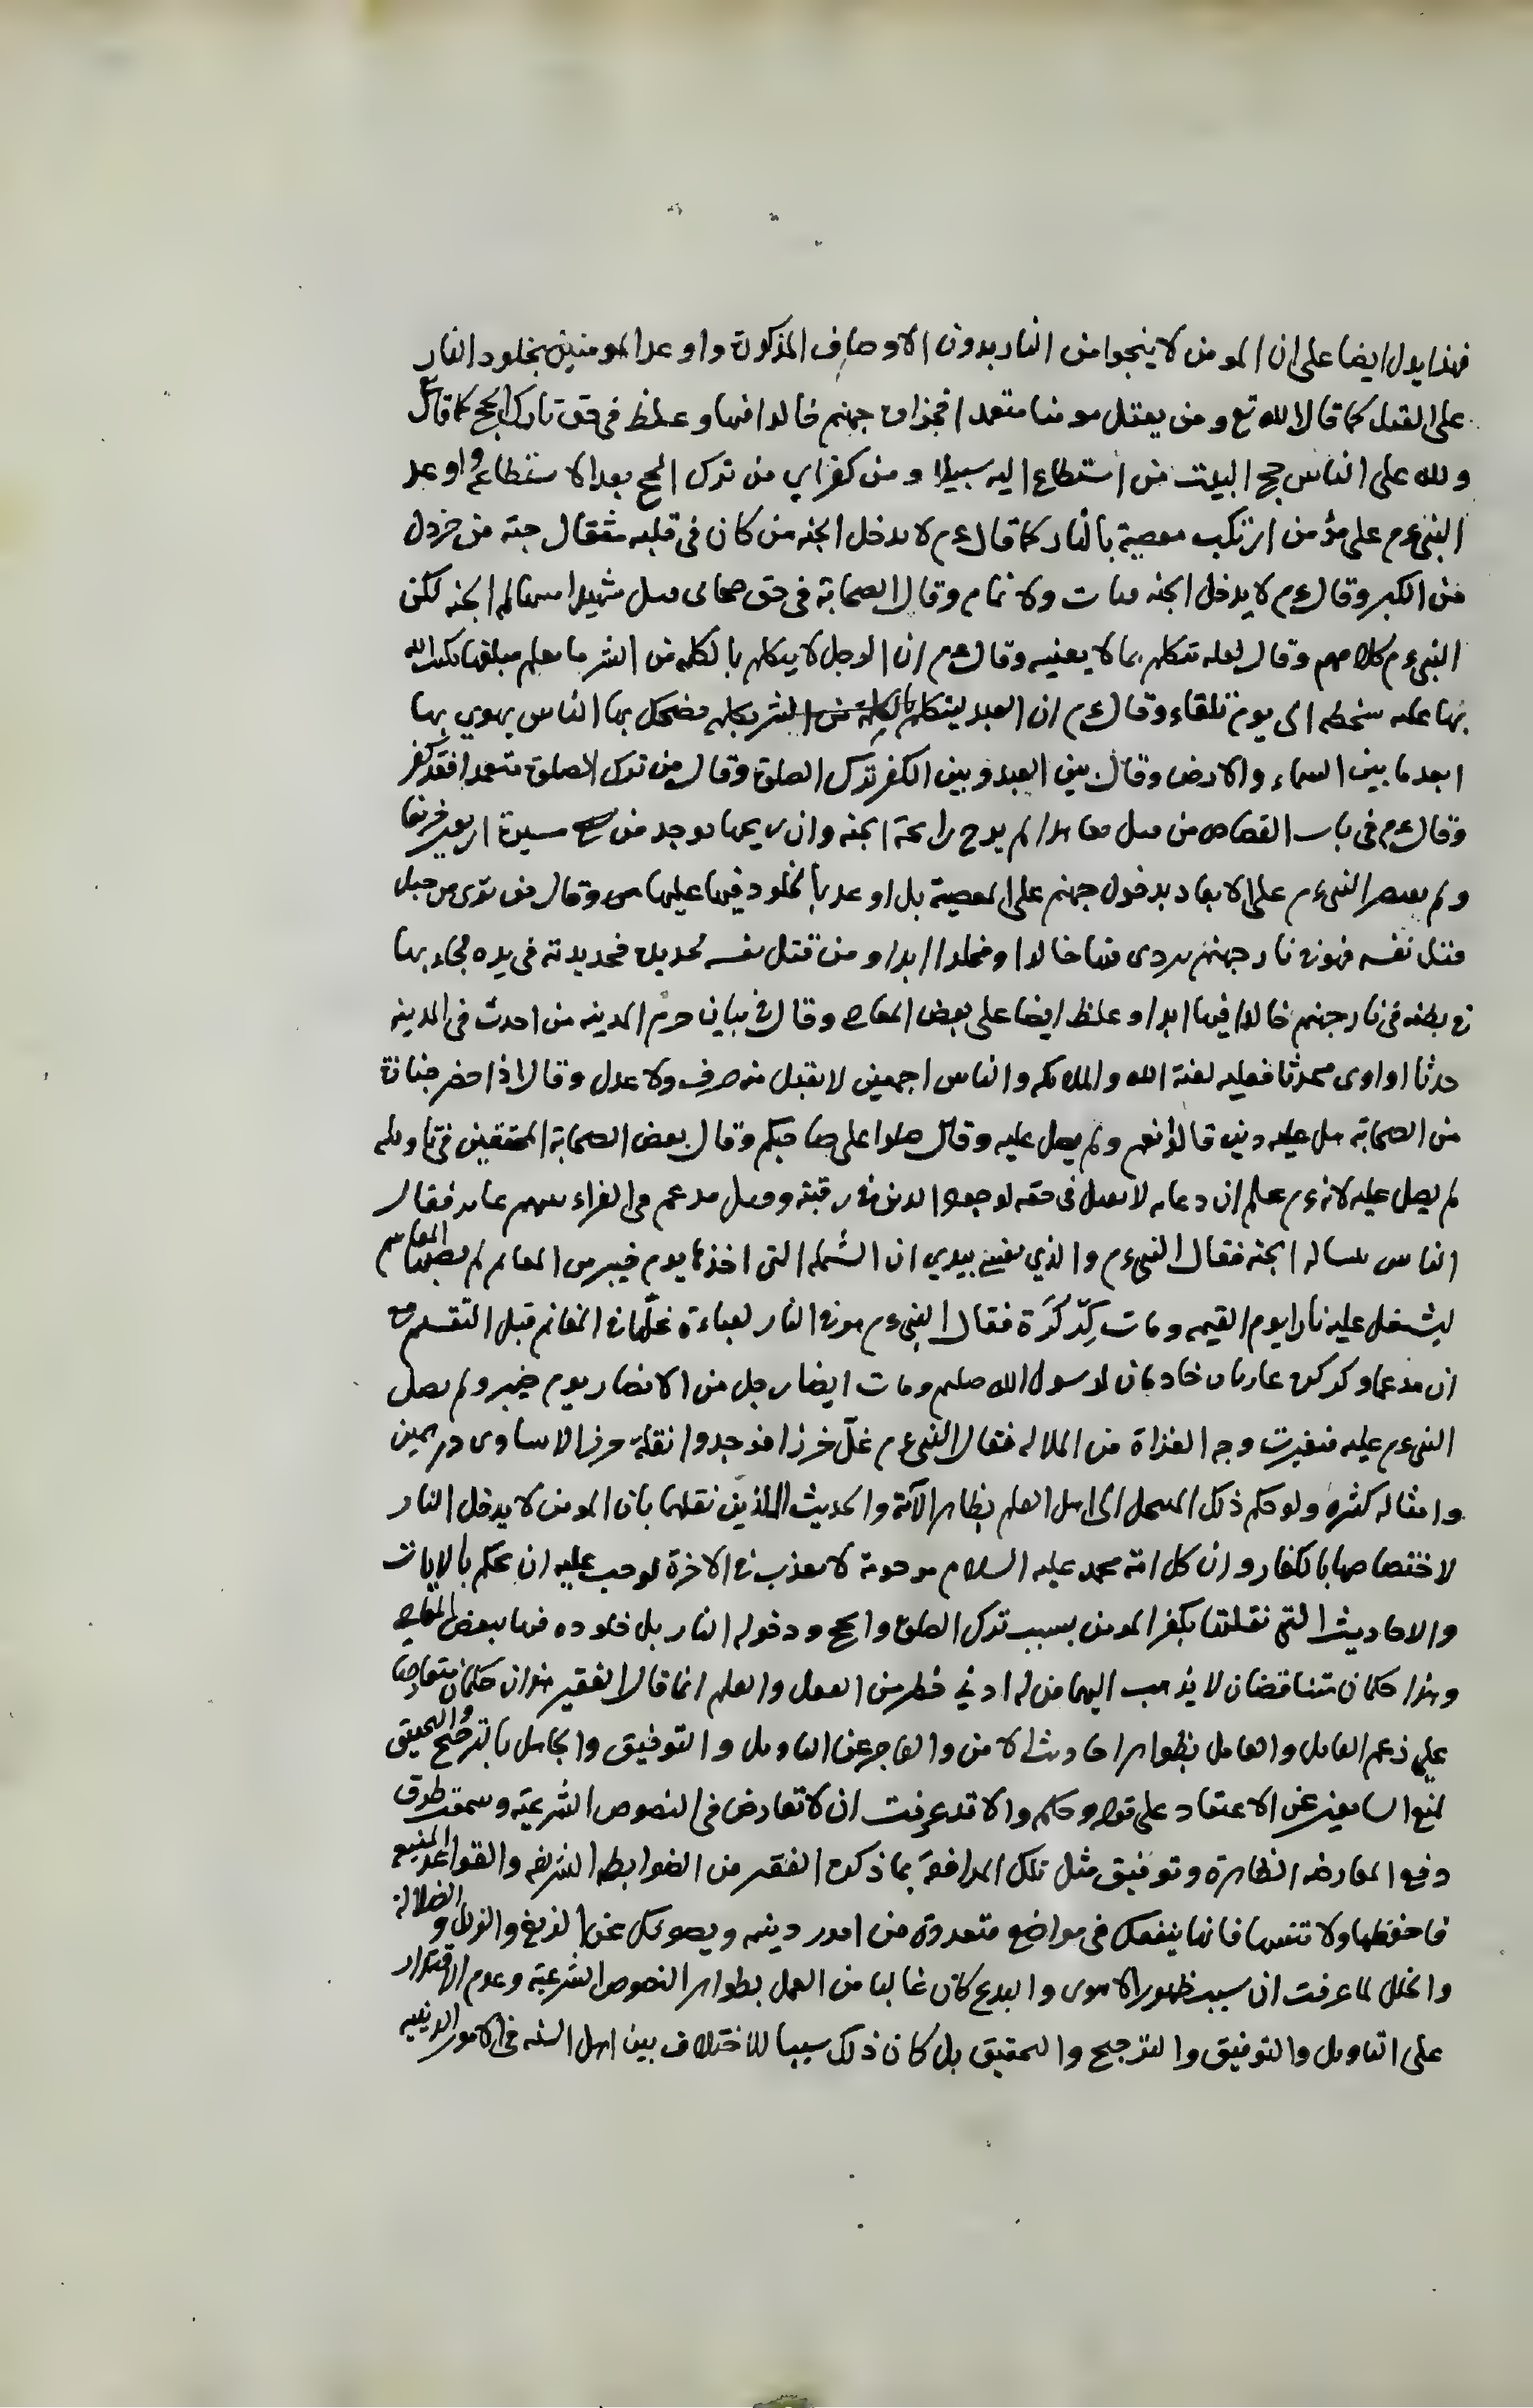 فهذا يدل ايضا على ان المومن لا ينجوا من النار بدون الاوصاف المذكورة واوعد المومنين بخلود النار
على القتل كما قال الله تع ومن يقتل مومنا متعمدا فجزاؤه جهنم خالدا فيها وغلظ في حق تارك الحج كما قال
ولله على الناس حج البيت من استطاع اليه سبيلا ومن كفر اي من ترك الحج بعد الاستطاعة واوعد
النبي عم على مؤمن ارتكب معصية بالنار كما قال عم لا يدخل الجنه من كان في قلبه مثقال حبة من خردل
من الكبر وقال عم لا يدخل الجنه قتات ولا نمام وقال الصحابة في حق صحابى قتل شهيدا هنيئا له الجنه لكن
النبي عم كلامهم وقال لعله تتكلم بما لا يعنيه وقال عم ان الرجل لا يتكلم بالكلمه من الشر ما يعلم مبلغها يكتب الله
بها عليه سخطه الى يوم تلقاء وقال عم ان العبد ليتكلم بالكلمة من الشر يكلم فضحك بها الناس يهوي بها
ابعد ما بين السماء والارض وقال بين العبد وبين الكفر ترك الصلوة وقال من ترك الصلوة متعمدا فقد كفر
وقال عم في باب القصاص من قتل معاهدا لم يرح رائحة الجنه وان ريحها توجد من مسيرة اربعين خريفا
ولم يقصر النبي عم على الايعاد بدخول جهنم على المعصية بل اوعد بالخلود فيها عليها وقال من تردى من جبل
فقتل نفسه فهو في نار جهنم يتردى فيها خالدا ومخلدا ابدا ومن قتل نفسه بحديدة فحديدته في يده يجاء بها
في بطنه في نار جهنم خالدا فيها ابدا وغلظ ايضا على بعض المعاصي وقال في بيان حرم المدينه من احدث في المدينه
حدثا او اوى محدثا فعليه لعنة الله والملائكه والناس اجمعين لا يقبل منه صرف ولا عدل وقال اذا حضر جنازة
من الصحابة هل عليه دين قالوا نعم ولم يصل عليه وقال صلوا على صاحبكم وقال بعض الصحابة المحققين في تاويله
لم يصل عليه لانه عم علم ان دعائه لا يقبل في حقه لوجود الدين في رقبته وقتل مدعم في الغزاء بسهم عاير فقال
الناس هنيئا له الجنه فقال النبي عم والذي نفسي بيدي ان الشمله التي اخذها يوم خيبر من المغانم لم تصبها المقاسم
ليشتعل عليه نارا يوم القيمه ومات كِرْكَرَة فقال النبي عم هو في النار لعباءة غلّها في المغانم قبل التقسيم مع
ان مدعما وكركره عاريان خادمان لرسول الله صلعم ومات ايضا رجل من الانصار يوم خيبر ولم يصل
النبي عم عليه فتغيرت وجه الغزاة من الملاله فقال النبي عم غلّ خرزا فوجدوا نقلة خرز لا يساوى درهمين
وامثاله كثيرة ولو حكم ذلك المستحل الى اهل العلم بظاهر الآية والحديث الذين نقلهما بان المومن لا يدخل النار
لاختصاصها بالكفار وان كل امة محمد عليه السلام مرحومة لا يعذب في الاخرة لوجب عليه ان يحكم بالايات
والاحاديث التي نقلتها بكفر المومن بسبب ترك الصلوة والحج ودخوله النار بل خلوده فيها ببعض المعاصي
وهذا حكمان متناقضان لا يذهب اليهما من له ادنى خطر من العقل والعلم انما قال الفقير هذان حكمان متعارضان
على زعم القائل والعامل بظواهر احاديث الامن والعاجز عن التاويل والتوفيق والجاهل بالترجيح والتحقيق
لمنع السامعين عن الاعتقاد على قوله وحكمه والا قد عرفت ان لا تعارض في النصوص الشرعية وسمعت طرق
دفع المعارضه الظاهرة وتوفيق مثل تلك المدافعة بما ذكره الفقير من الضوابط الشريفه والقواعد المنيع
فاحفظها ولا تنسها فانها ينفعك في مواضع متعددة من امور دينيه ويصونك عن الزيغ والزلل والضلالة
والخلل لما عرفت ان سبب ظهور الاهوى والبدع كان غالبا من العمل بظواهر النصوص الشرعية وعدم الاقتدار
على التاويل والتوفيق والترجيح والتحقيق بل كان ذلك سببا للاختلاف بين اهل السنه في الامور الدينيه